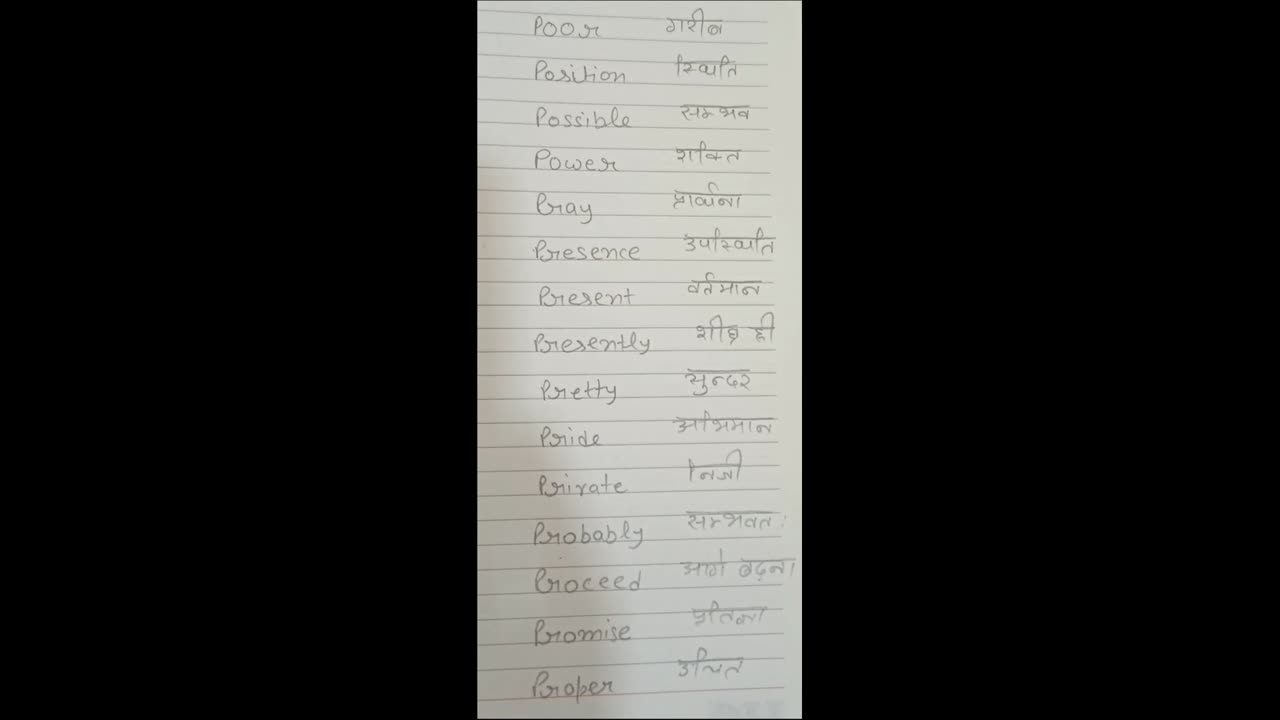 Poor गरीब
Position स्थिति
Possible सम्भव
Power शक्ति
Pray प्रार्थना
Presence उपस्थिति
Present वर्तमान
Presently शीघ्र ही
Pretty सुन्दर
Pride अभिमान
Private निजी
Probably सम्भवत:
Proceed आगे बढ़ना
Promise
Proper उचित